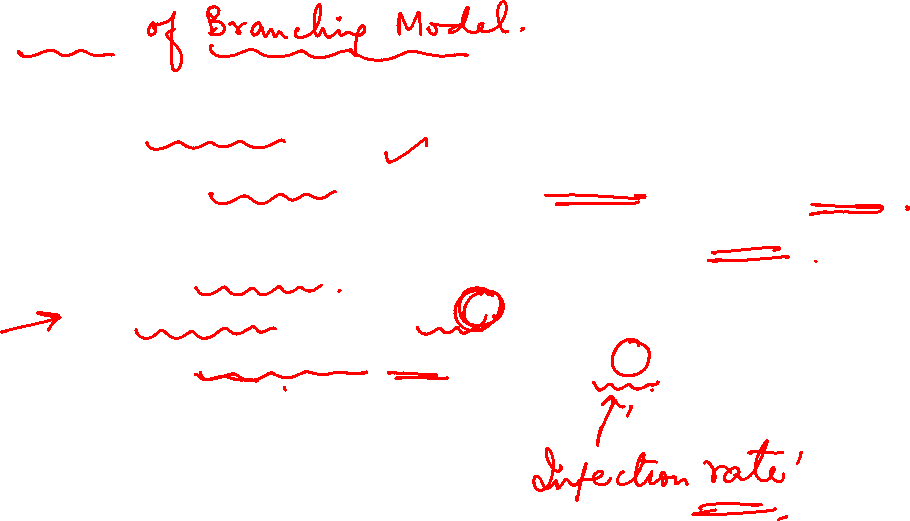 of Branching Model.
Infection rate